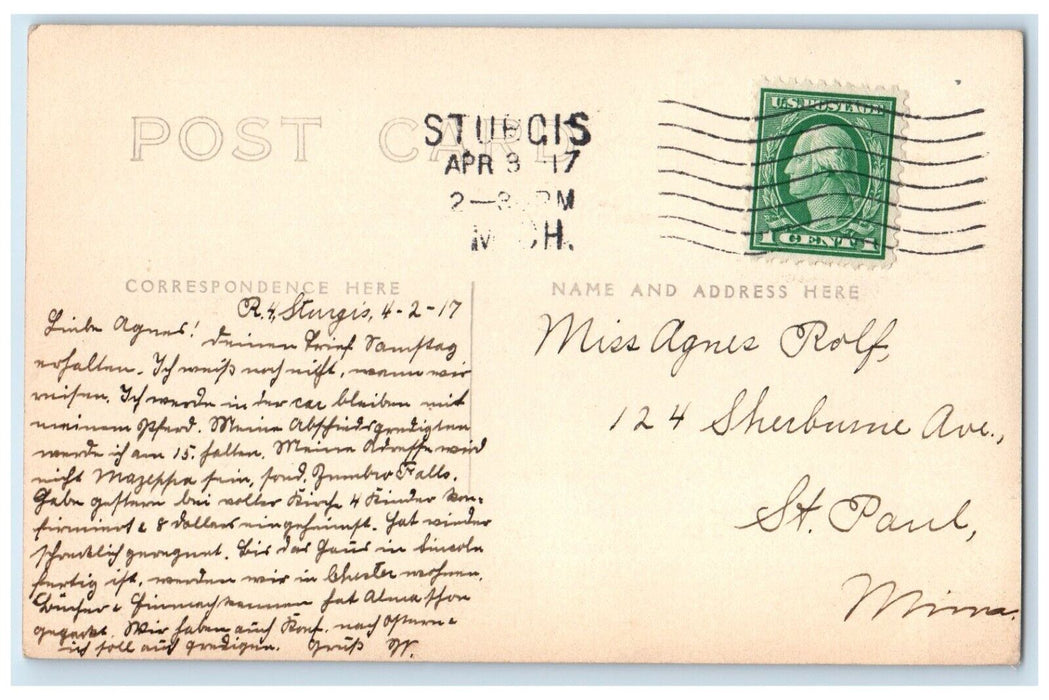 POST CARD
STURGIS
APR 3 17
2—3 PM
MICH.
U.S. POSTAGE
1 CENT 1
CORRESPONDENCE HERE
NAME AND ADDRESS HERE
R. 4, Sturgis, 4-2-17
Liebe Agnes! Deinen Brief Samstag
erhalten. Ich weiß noch nicht, wann wir
reisen. Ich werde in der car bleiben mit
meinem Pferd. Meine Abschiedspredigten
werde ich am 15. halten. Meine Adresse wird
nicht Mazeppa sein, sond. Zumbro Falls.
Habe gestern bei voller Kirche 4 Kinder kon-
firmiert & 8 Dollars eingeheimst. Hat wieder
schrecklich geregnet. Bis das Haus in Lincoln
fertig ist, werden wir in Chester wohnen.
Bücher & Einmachkannen hat Alma schon
gepackt. Wir haben auch Konf. nach Ostern &
ich soll auch predigen. Gruß W.
Miss Agnes Rolf,
124 Sherburne Ave.,
St. Paul,
Minn.